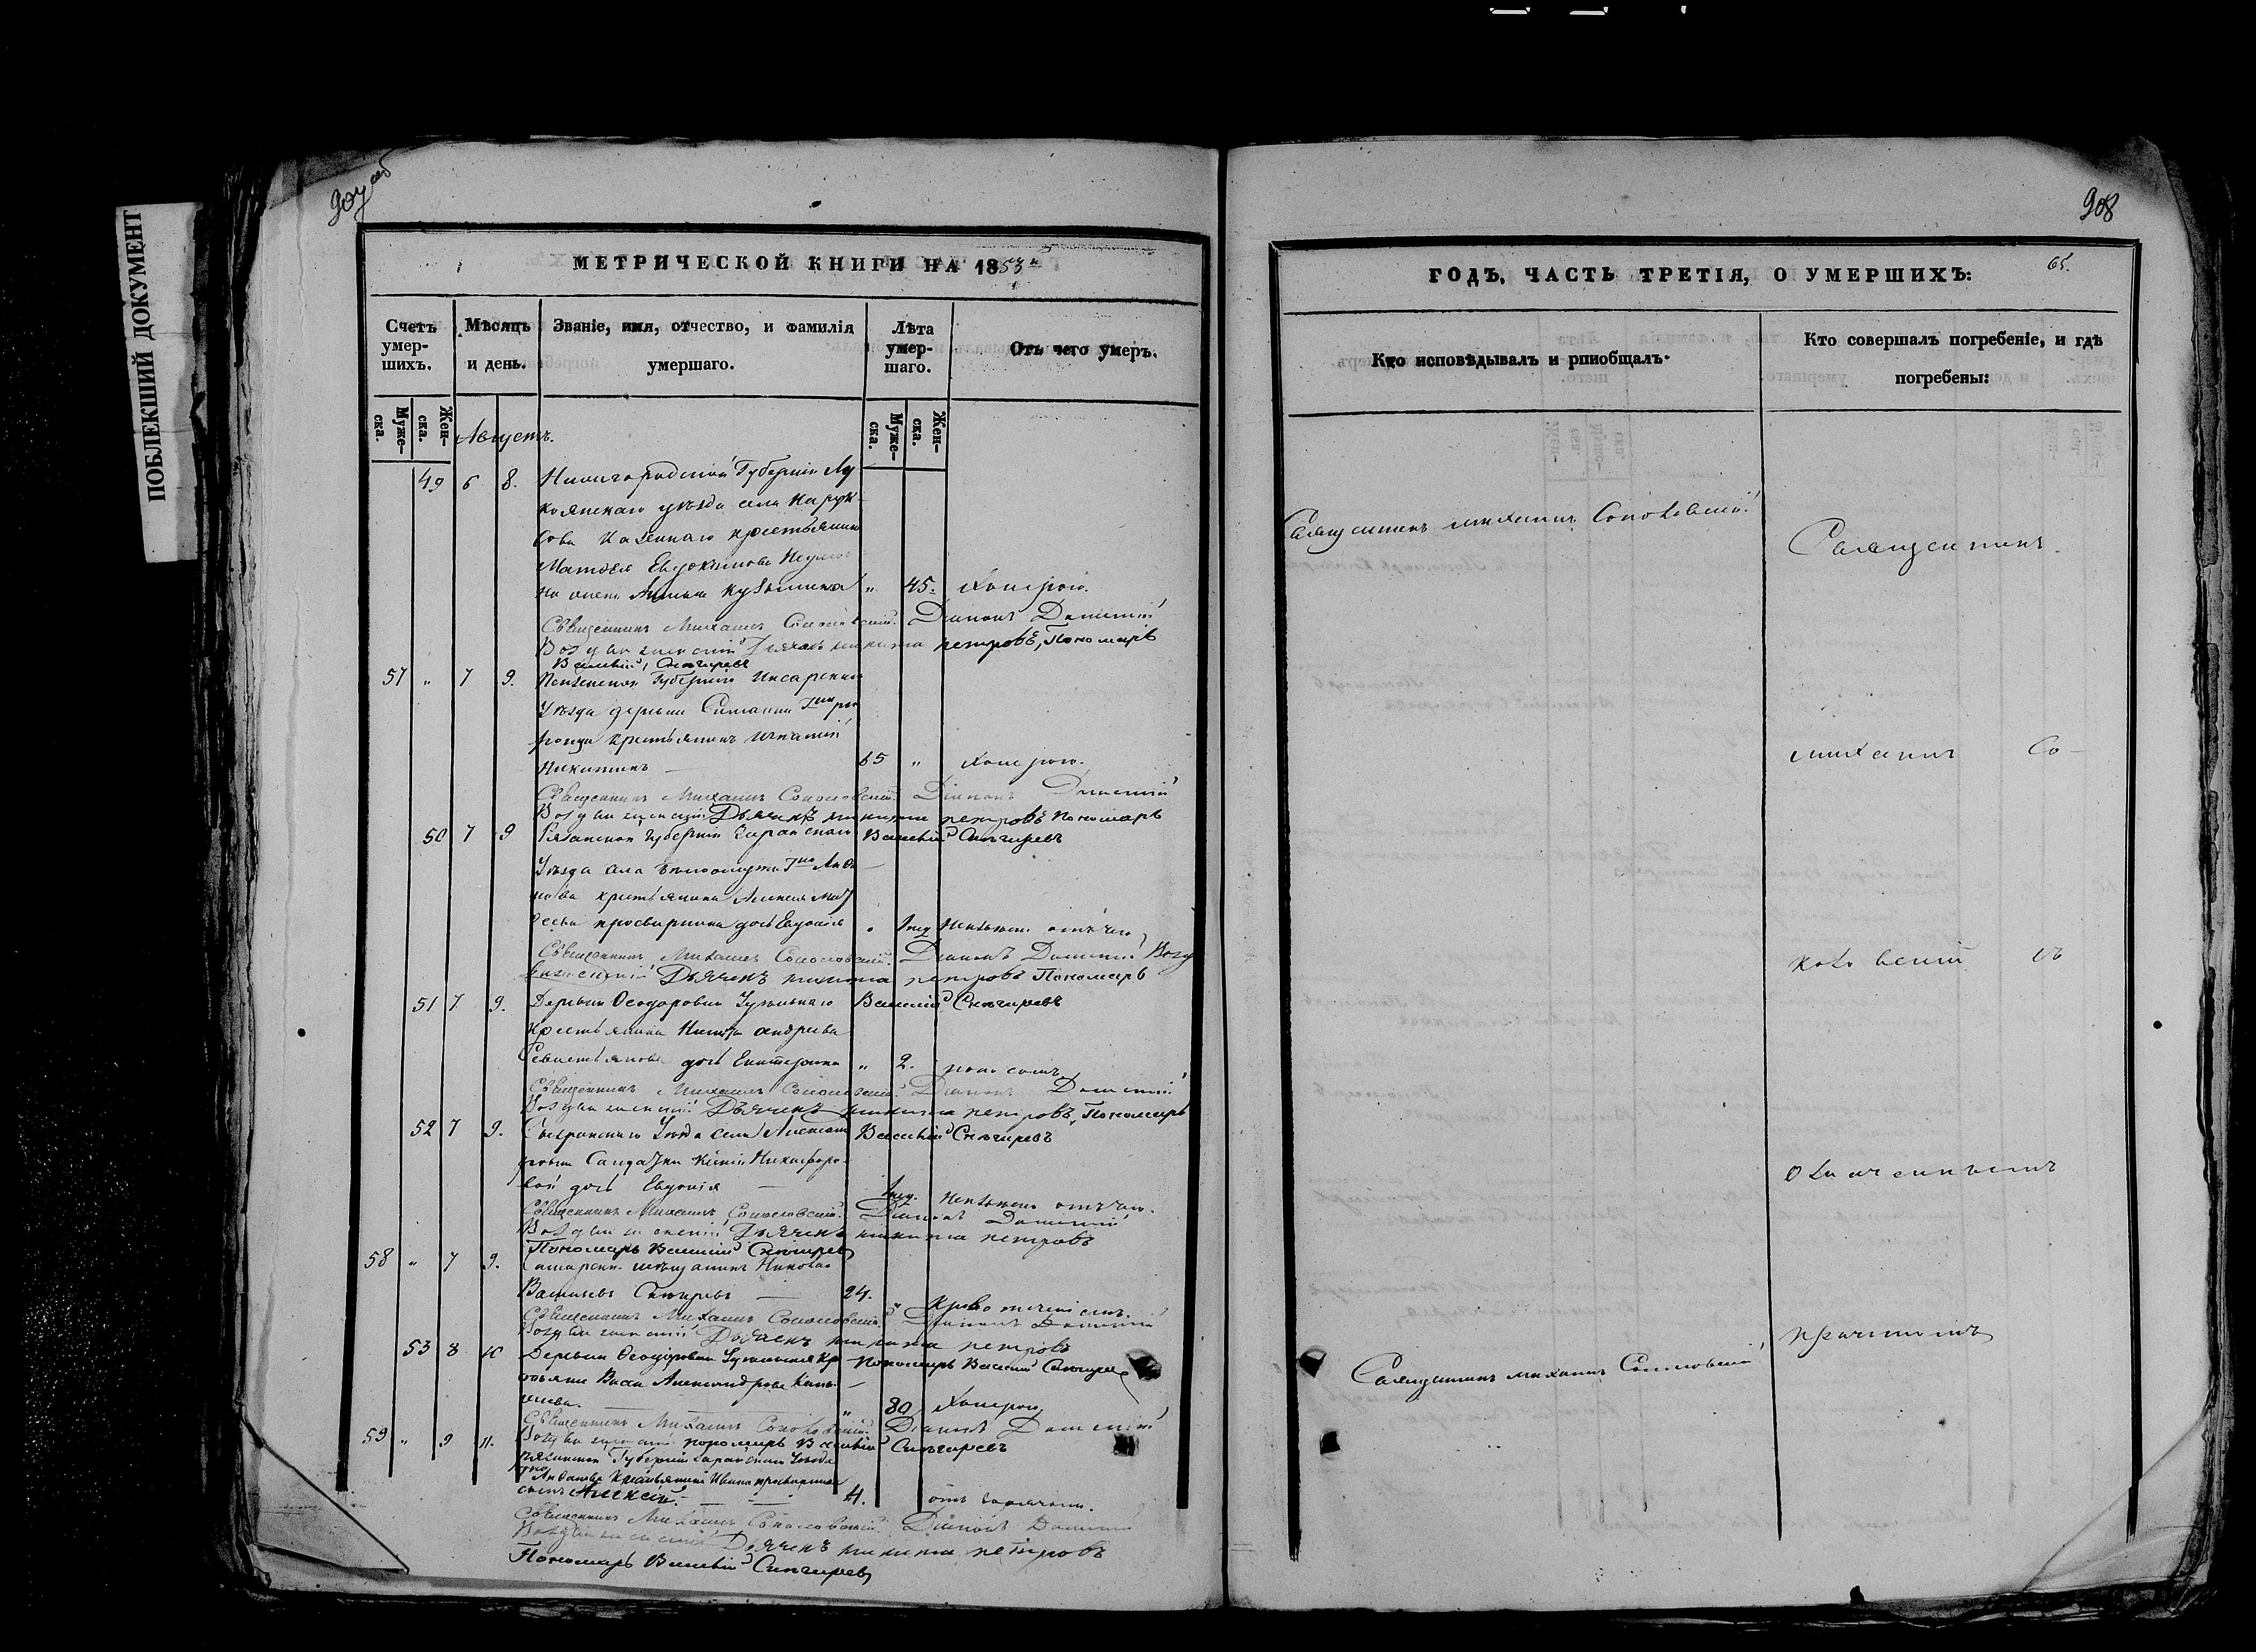 ПОБЛЕКШИЙ ДОКУМЕНТ
907 об
908
МЕТРИЧЕСКОЙ КНИГИ НА 1853й
Счетъ умер-шихъ.
Муже-ска.
Жен-ска.
Мѣсяцъ и день.
Званіе, имя, отчество, и фамилія умершаго.
Лѣта умер-шаго.
Муже-ска.
Жен-ска.
Отъ чего умеръ.
Августъ.
49 6 8. Нижегородской Губерніи Лу-
кояпскаго уѣзда села Нарук-
сова Казеннаго крестьянина
Матвея Евдокимова
жена Кузьмина „ 45. Холерою.
Священникъ Михаилъ Соколовскій. Діаконъ Дометій
Воздвиженскій Дьячекъ никита петровъ, Пономарь
Василій Снѣгиревъ
57 „ 7 9. Пензенской Губерніи Инсарскаго
Уѣзда деревни
крестьянинъ Игнатій
Никитинъ — 65 „ Холерою.
Священникъ Михаилъ Соколовскій. Діаконъ Дометій
Воздвиженскій Дьячекъ никита петровъ Пономарь
Василій Снѣгиревъ
50 7 9 Рязанской Губерніи Зарайскаго
Уѣзда села Гна
крестьянина Алексея
дочь Евдокія „ 1 нед Неизвѣстно отъ чего
Священникъ Михаилъ Соколовскій. Діаконъ Дометій Возд
виженскій Дьячекъ никита петровъ Пономарь
Василій Снѣгиревъ
51 7 9. Деревни Ѳеодоровки Удѣльнаго
Крестьянина Никиты андреева
Севастьянова дочь Екатерина „ 2. поносомъ
Священникъ Михаилъ Соколовскій Діаконъ Дометій
Воздвиженскій Дьячекъ никита петровъ, Пономарь
Василій Снѣгиревъ
52 7 9. Сызранскаго Уѣзда села
Солдатки Никифоро-
вой дочь Евдокія — 1 нед. Неизвѣстно отъ чего.
Священникъ Михаилъ Соколовскій. Діаконъ Дометій
Воздвиженскій Дьячекъ никита петровъ
Пономарь Василій Снѣгиревъ
58 „ 7 9. Самарскій мѣщанинъ Николай
Васильевъ Снѣгиревъ — 24. „ Кровотеченіемъ.
Священникъ Михаилъ Соколовскій. Діаконъ Дометій
Воздвиженскій Дьячекъ никита петровъ
Пономарь Василій Снѣгиревъ
53 8 10 Деревни Ѳеодоровки Удѣльная Кре-
стьянка Васса Александрова
„ 80 Холерою.
Священникъ Михаилъ Соколовскій. Діаконъ Дометій
Воздвиженскій пономарь Василій Снѣгиревъ
59 „ 9 11. Рязанской Губерніи Зарайскаго Уѣзда
Гна Крестьянина Ивана
сынъ Алексѣй. — 4. отъ горячки.
Священникъ Михаилъ Соколовскій. Діаконъ Дометій
Воздвиженскій Дьячекъ никита петровъ
Пономарь Василій Снѣгиревъ
ГОДЪ, ЧАСТЬ ТРЕТІЯ, О УМЕРШИХЪ:
65.
Кто исповѣдывалъ и рпиобщалъ.
Кто совершалъ погребеніе, и гдѣ погребены:
Священникъ михаилъ Соколовскій.
Священникъ
михаилъ Со-
коловскій съ
означеннымъ
причтомъ
Священникъ михаилъ Соколовскій